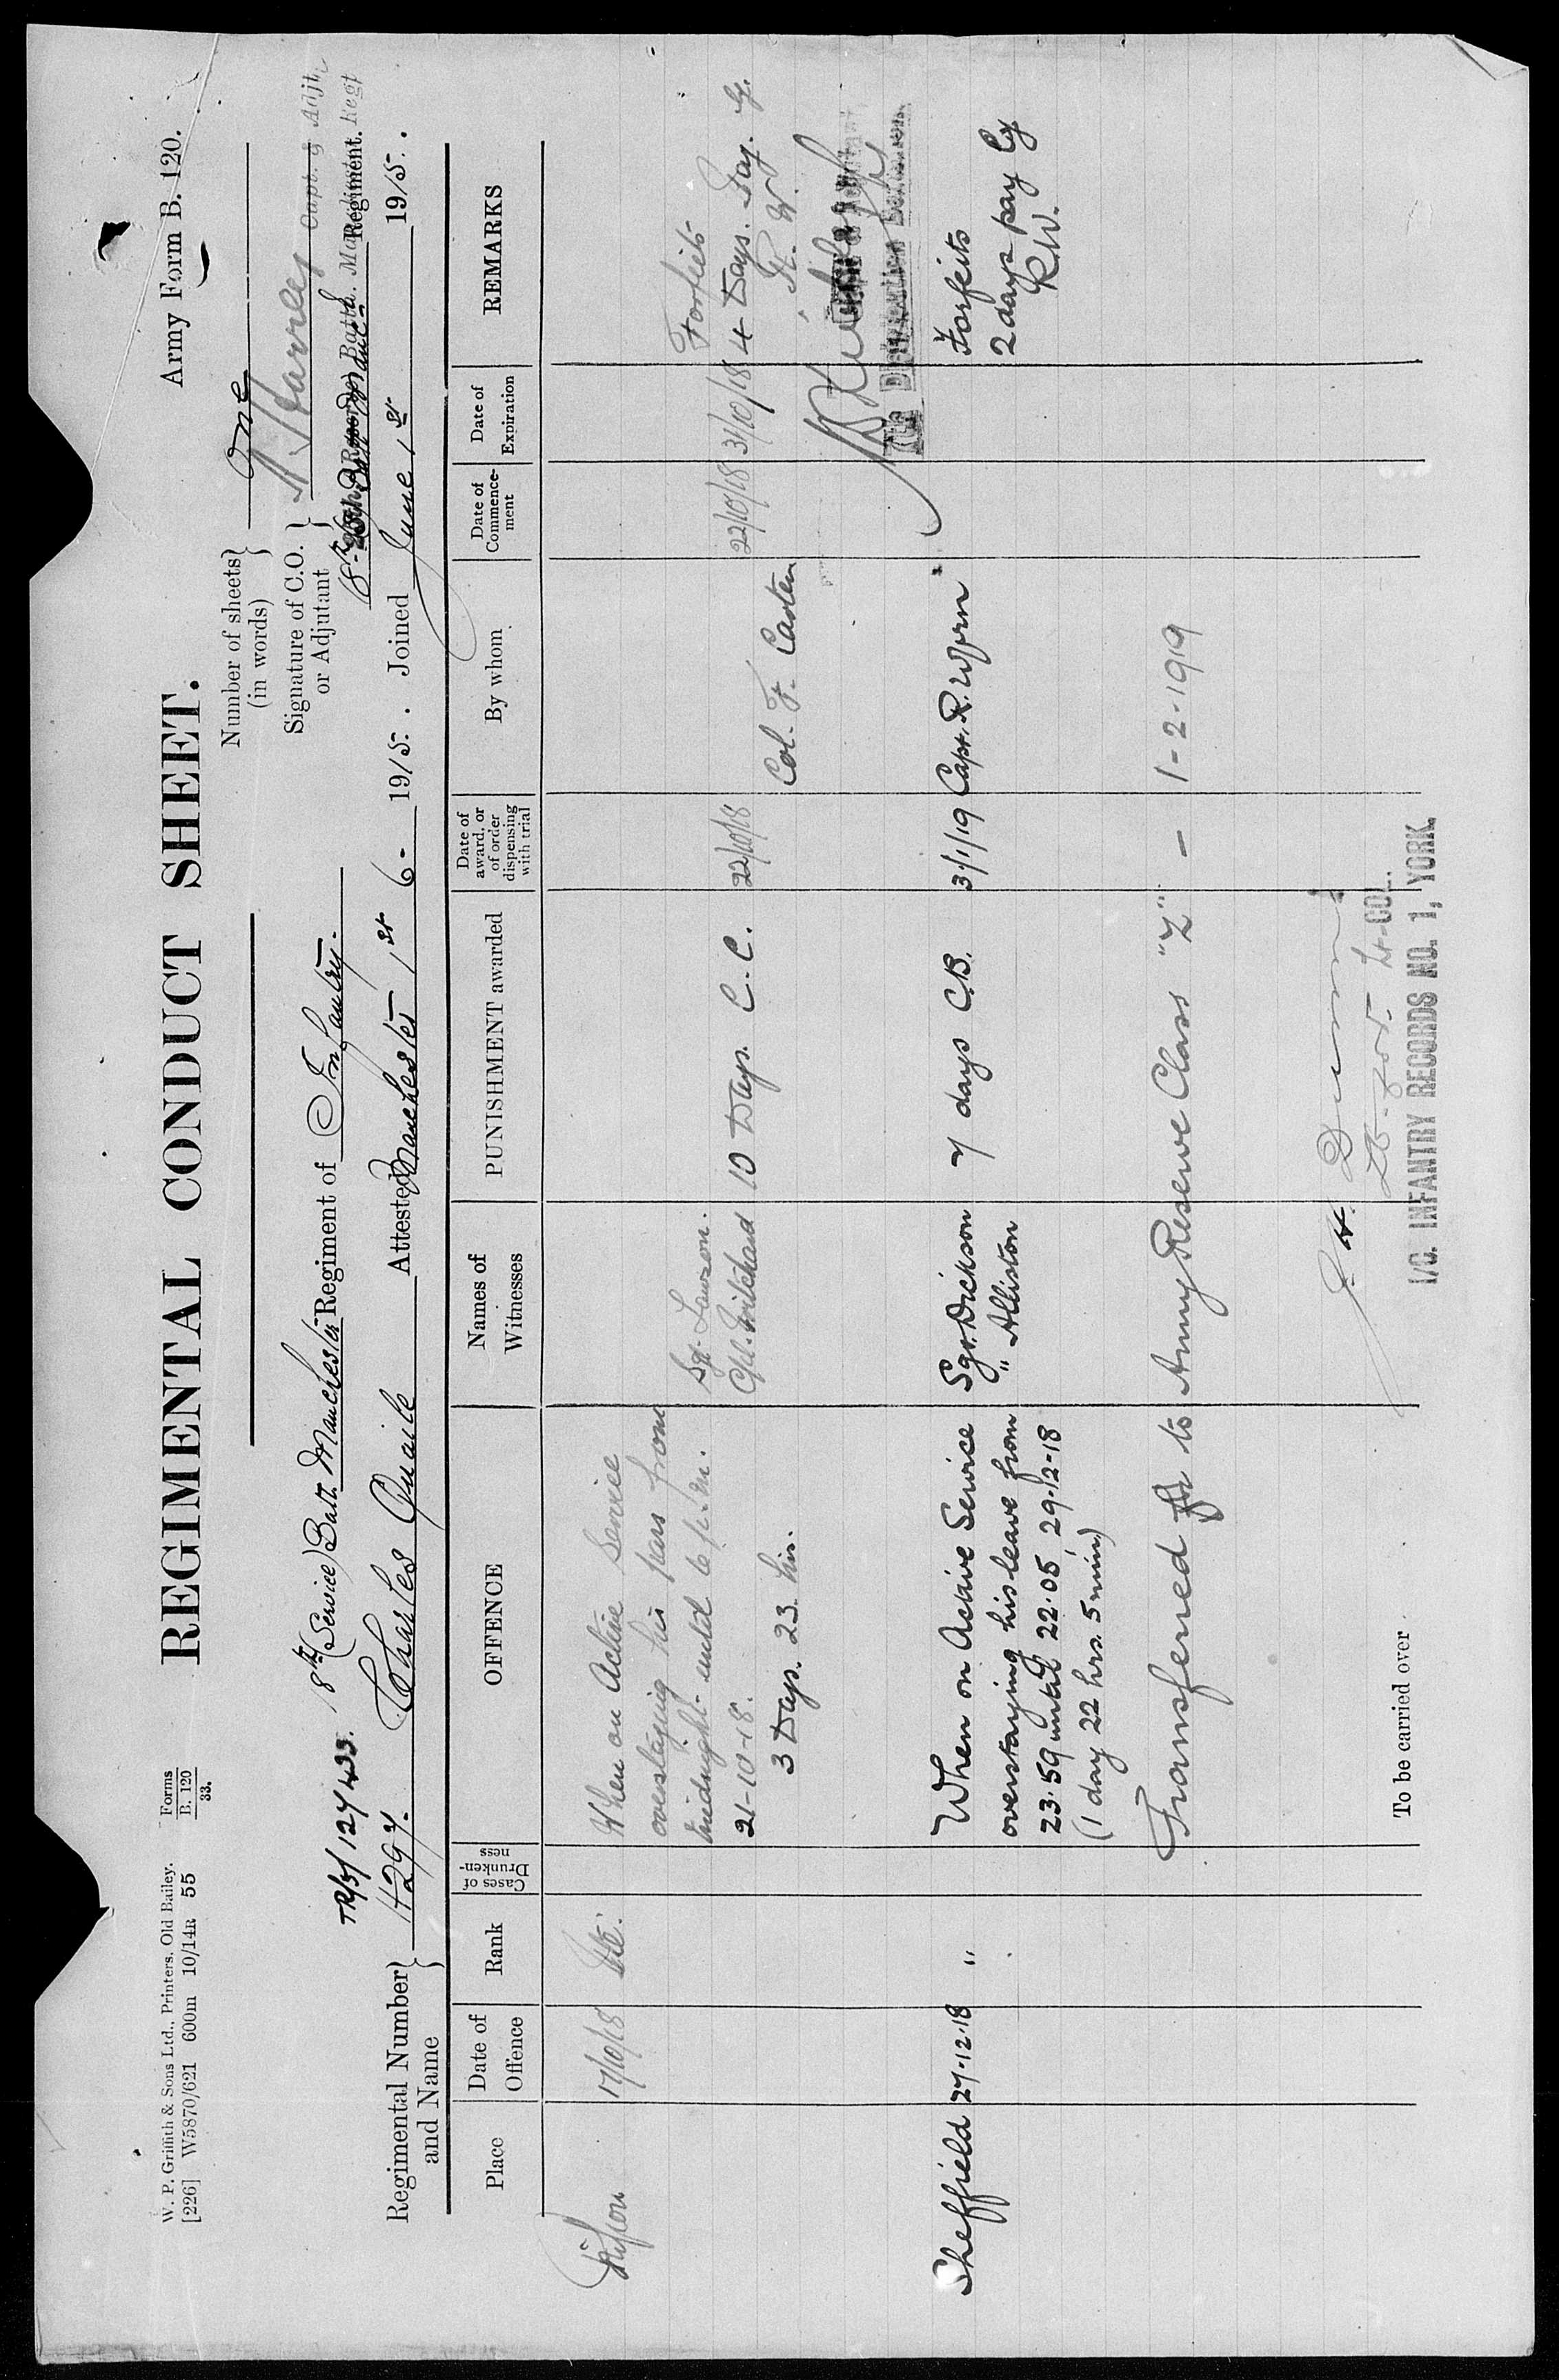 W. P. Griffith & Sons Ltd., Printers, Old Bailey.
[226] W5870/621 600m 10/14R 55
Forms
B. 120
33.
REGIMENTAL CONDUCT SHEET.
Army Form B. 120.
Number of sheets
(in words)
One
Signature of C.O.
or Adjutant
Capt. & Adjt.
Regiment.
18th (Service) Batt. Manchester Regiment of Infantry.
TR/5/
Regimental Number
and Name
Charles Quaile Attested Manchester 1st 6- 1915. Joined June 1st 1915.
Place
Date of
Offence
Rank
Cases of
Drunken-
ness
OFFENCE
Names of
Witnesses
PUNISHMENT awarded
Date of
award, or
of order
dispensing
with trial
By whom
Date of
Commence-
ment
Date of
Expiration
REMARKS
Ripon 17/10/18 Pte. When on Active Service
overstaying his pass from
midnight until 6 p.m.
21-10-18.
3 Days. 23. hrs.
Sgt. Lawson.
Cpl. Pritchard
10 Days. C.C. 22/10/18
Col. F.
22/10/18 31/10/18
Forfeits
4 Days. Pay.
Sheffield 27-12-18 " When on Active Service
overstaying his leave from
23.59 until 22.05, 29-12-18
(1 day 22 hrs. 5 min)
Sgt. Dickson
" Alliston
7 days C.B. 3/1/19 Capt. R.
Forfeits
2 days pay
R.W.
Transferred to Army Reserve Class "Z". – 1-2-1919
Lt-COL.
I/C. INFANTRY RECORDS NO. 1, YORK.
To be carried over